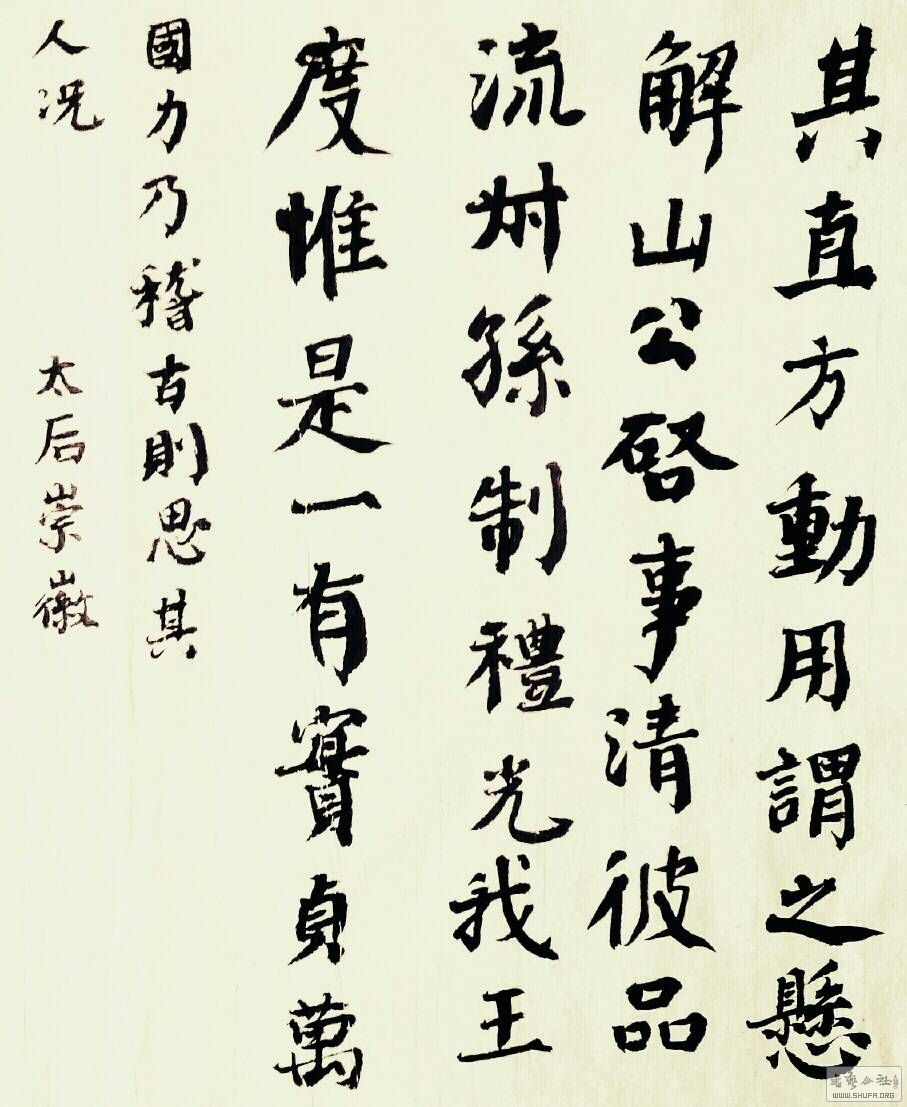 其直方動用謂之懸
解山公啓事清彼品
流叔孫制禮光我王
度惟是一有實貞萬
國力乃稽古則思其
人況　太后崇徽
書藝公社
WWW.SHUFA.ORG